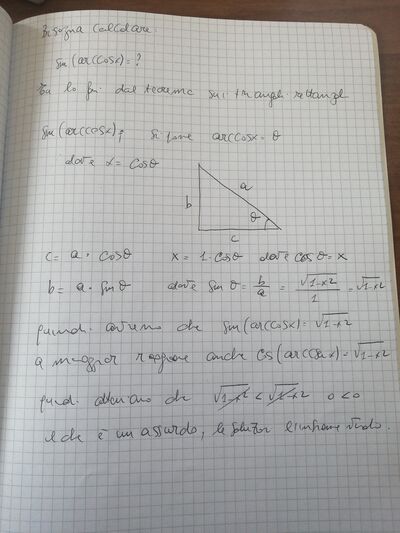 Bisogna calcolare:
sin(arccosx)=?
Tu lo fai dal teorema sui triangoli rettangoli
sin(arccosx); si pone arccosx=θ
dove x=cosθ
a
b
θ
c
c= a·cosθ x=1·cosθ dove cosθ=x
b= a·sinθ dove sinθ = b/a = √1-x2/1 = √1-x2
quindi avremo che sin(arccosx)=√1-x2
a maggior ragione anche cos(arccosx)=√1-x2
quindi che √1-x2 < √1-x2 0<0
e che è un assurdo, la soluzione l'insieme vuoto.